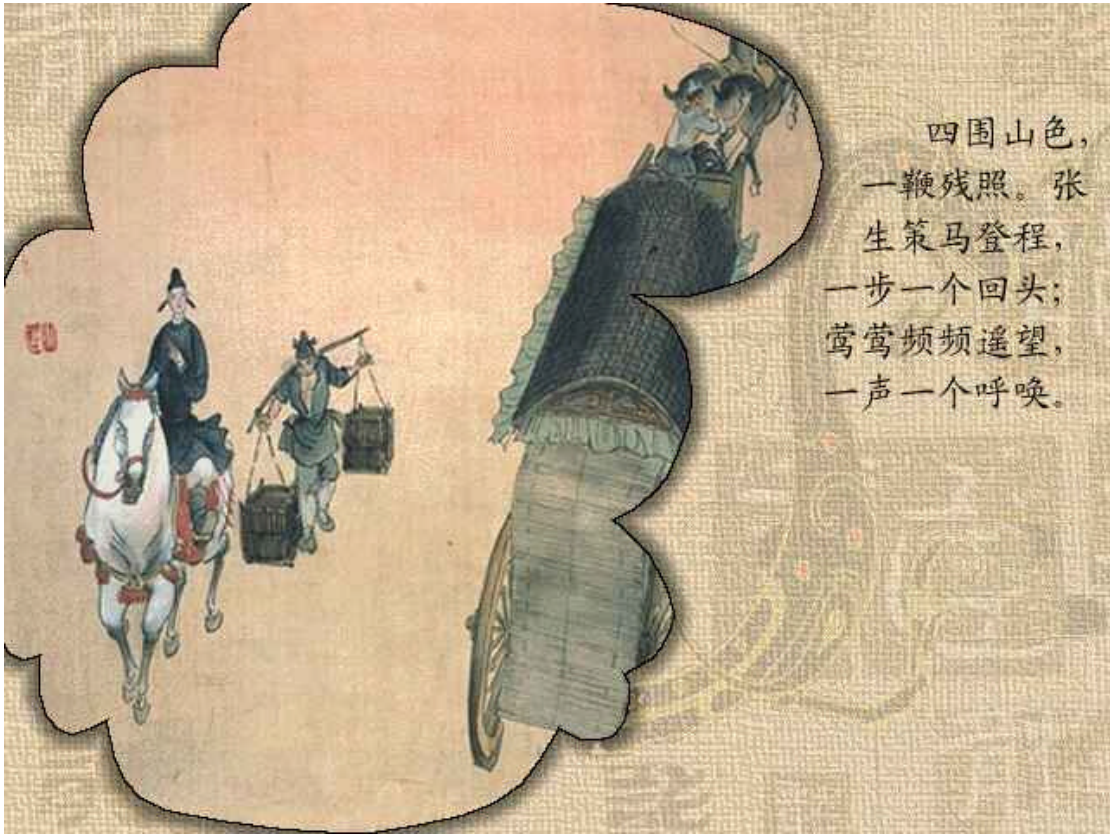 四围山色，
一鞭残照。张
生策马登程，
一步一个回头；
莺莺频频遥望，
一声一个呼唤。